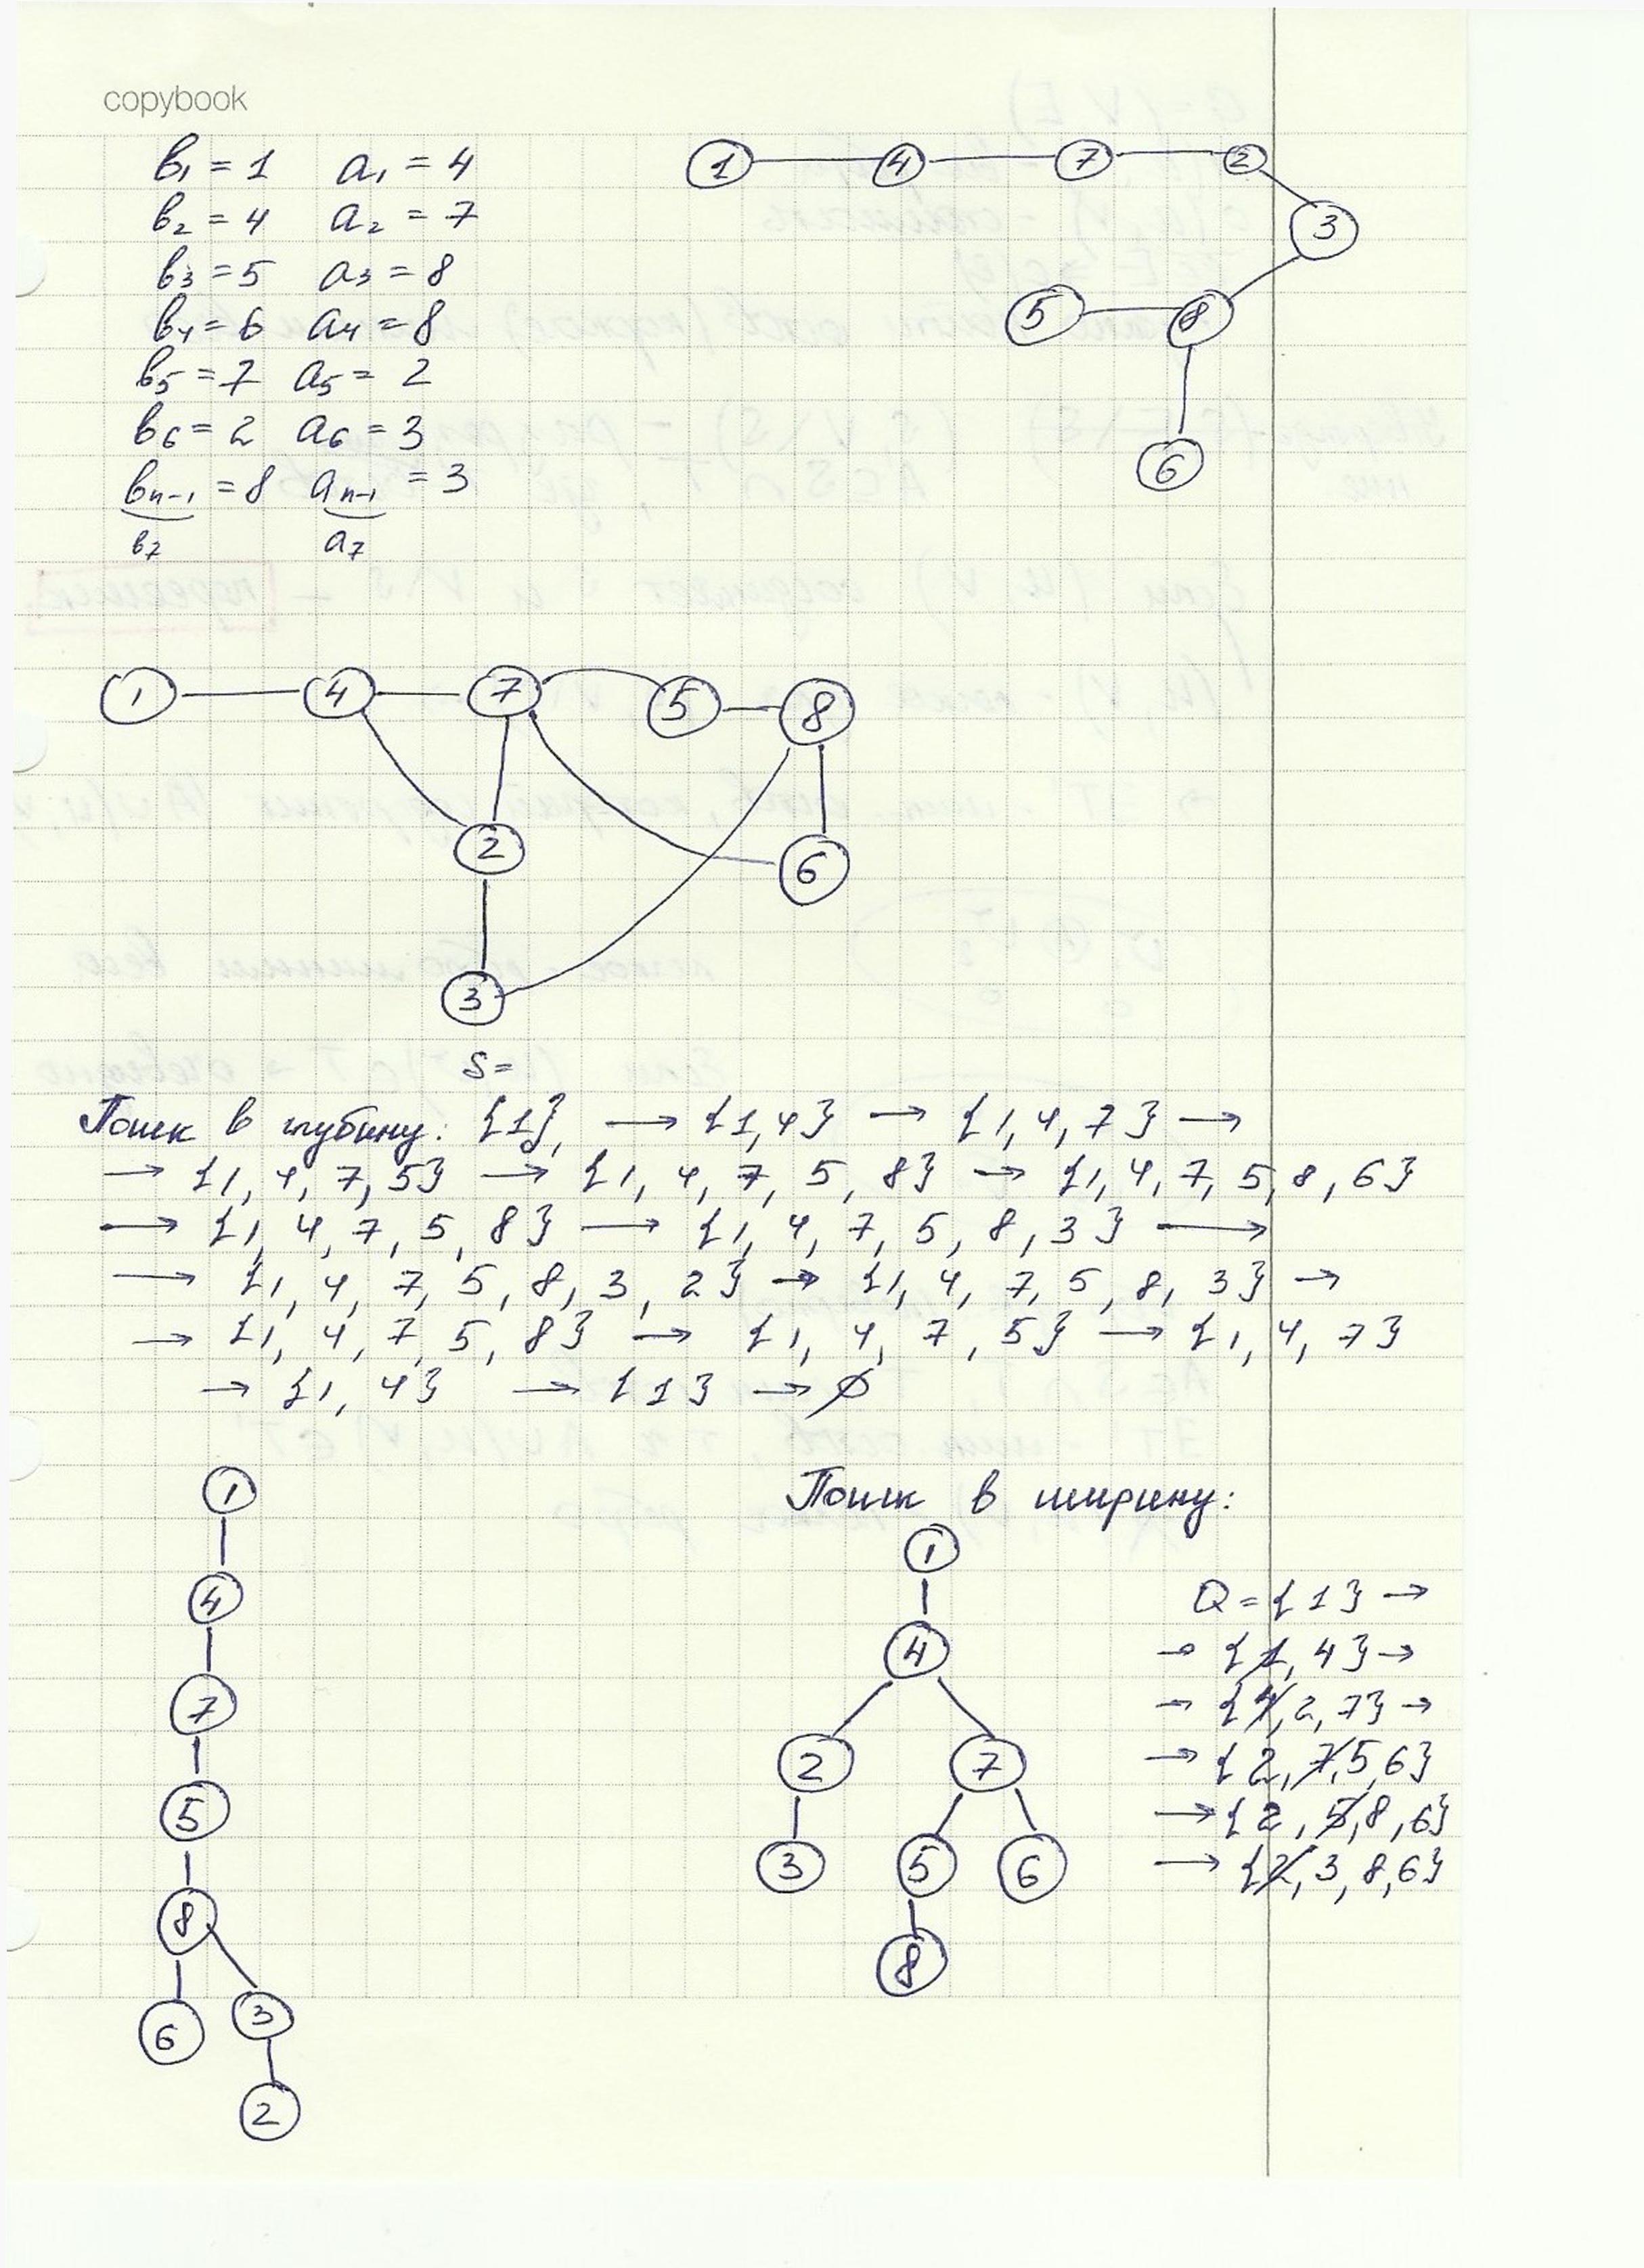 copybook
b₁ = 1 a₁ = 4
b₂ = 4 a₂ = 7
b₃ = 5 a₃ = 8
b₄ = 6 a₄ = 8
b₅ = 7 a₅ = 2
b₆ = 2 a₆ = 3
bₙ₋₁ = 8 aₙ₋₁ = 3
b₇ a₇
1 4 7 2
3
5 8
6
1 4 7 5 8
2 6
3
S =
Поиск в глубину: {1}, → {1,4} → {1,4,7} →
→ {1,4,7,5} → {1,4,7,5,8} → {1,4,7,5,8,6}
→ {1,4,7,5,8} → {1,4,7,5,8,3} →
→ {1,4,7,5,8,3,2} → {1,4,7,5,8,3} →
→ {1,4,7,5,8} → {1,4,7,5} → {1,4,7}
→ {1,4} → {1} → ∅
1
4
7
5
8
6 3
2
Поиск в ширину:
1
4
2 7
3 5 6
8
Q = {1} →
→ {1,4} →
→ {4,2,7} →
→ {2,7,5,6}
→ {2,5,8,6}
→ {2,3,8,6}